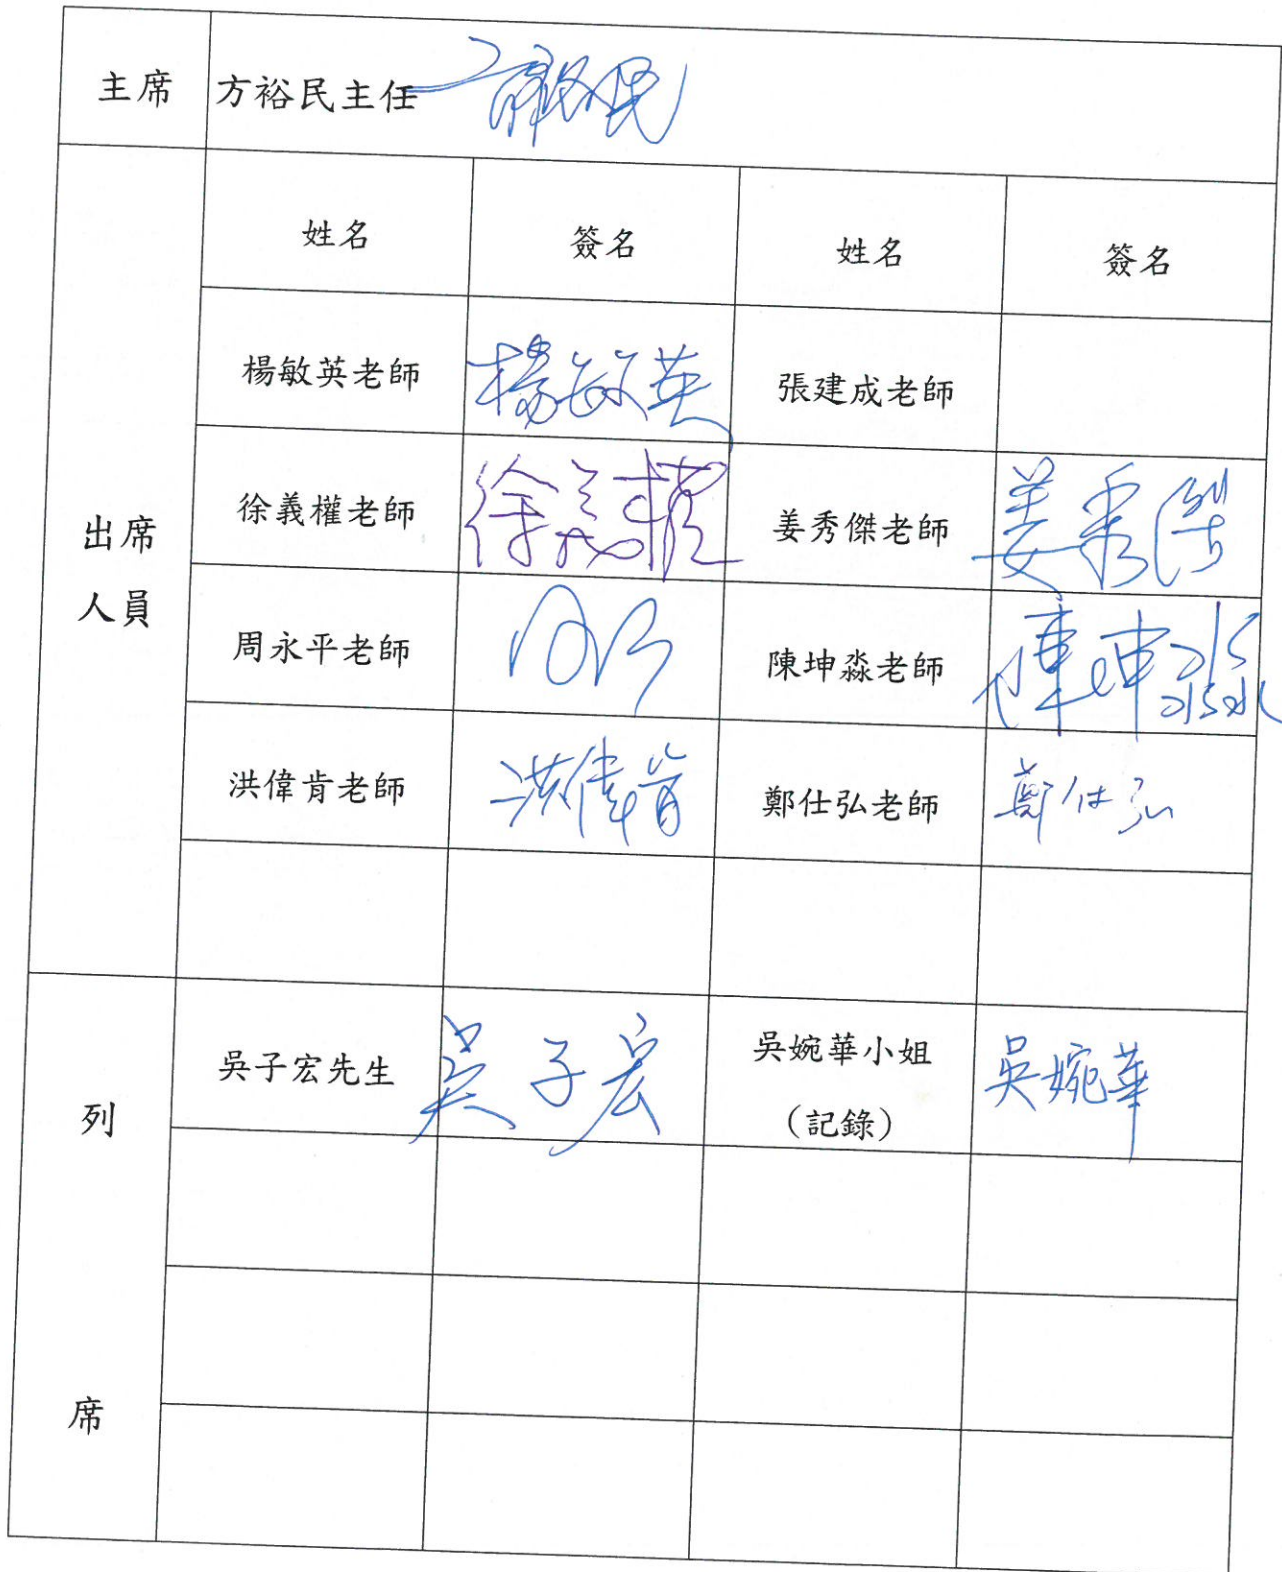 主席 方裕民主任
姓名 簽名 姓名 簽名
楊敏英老師 楊敏英 張建成老師
徐義權老師 徐義權 姜秀傑老師 姜秀傑
出席
人員
周永平老師 陳坤淼老師 陳坤淼
洪偉肯老師 洪偉肯 鄭仕弘老師 鄭仕弘
列
席
吳子宏先生 吳子宏 吳婉華小姐 吳婉華
（記錄）